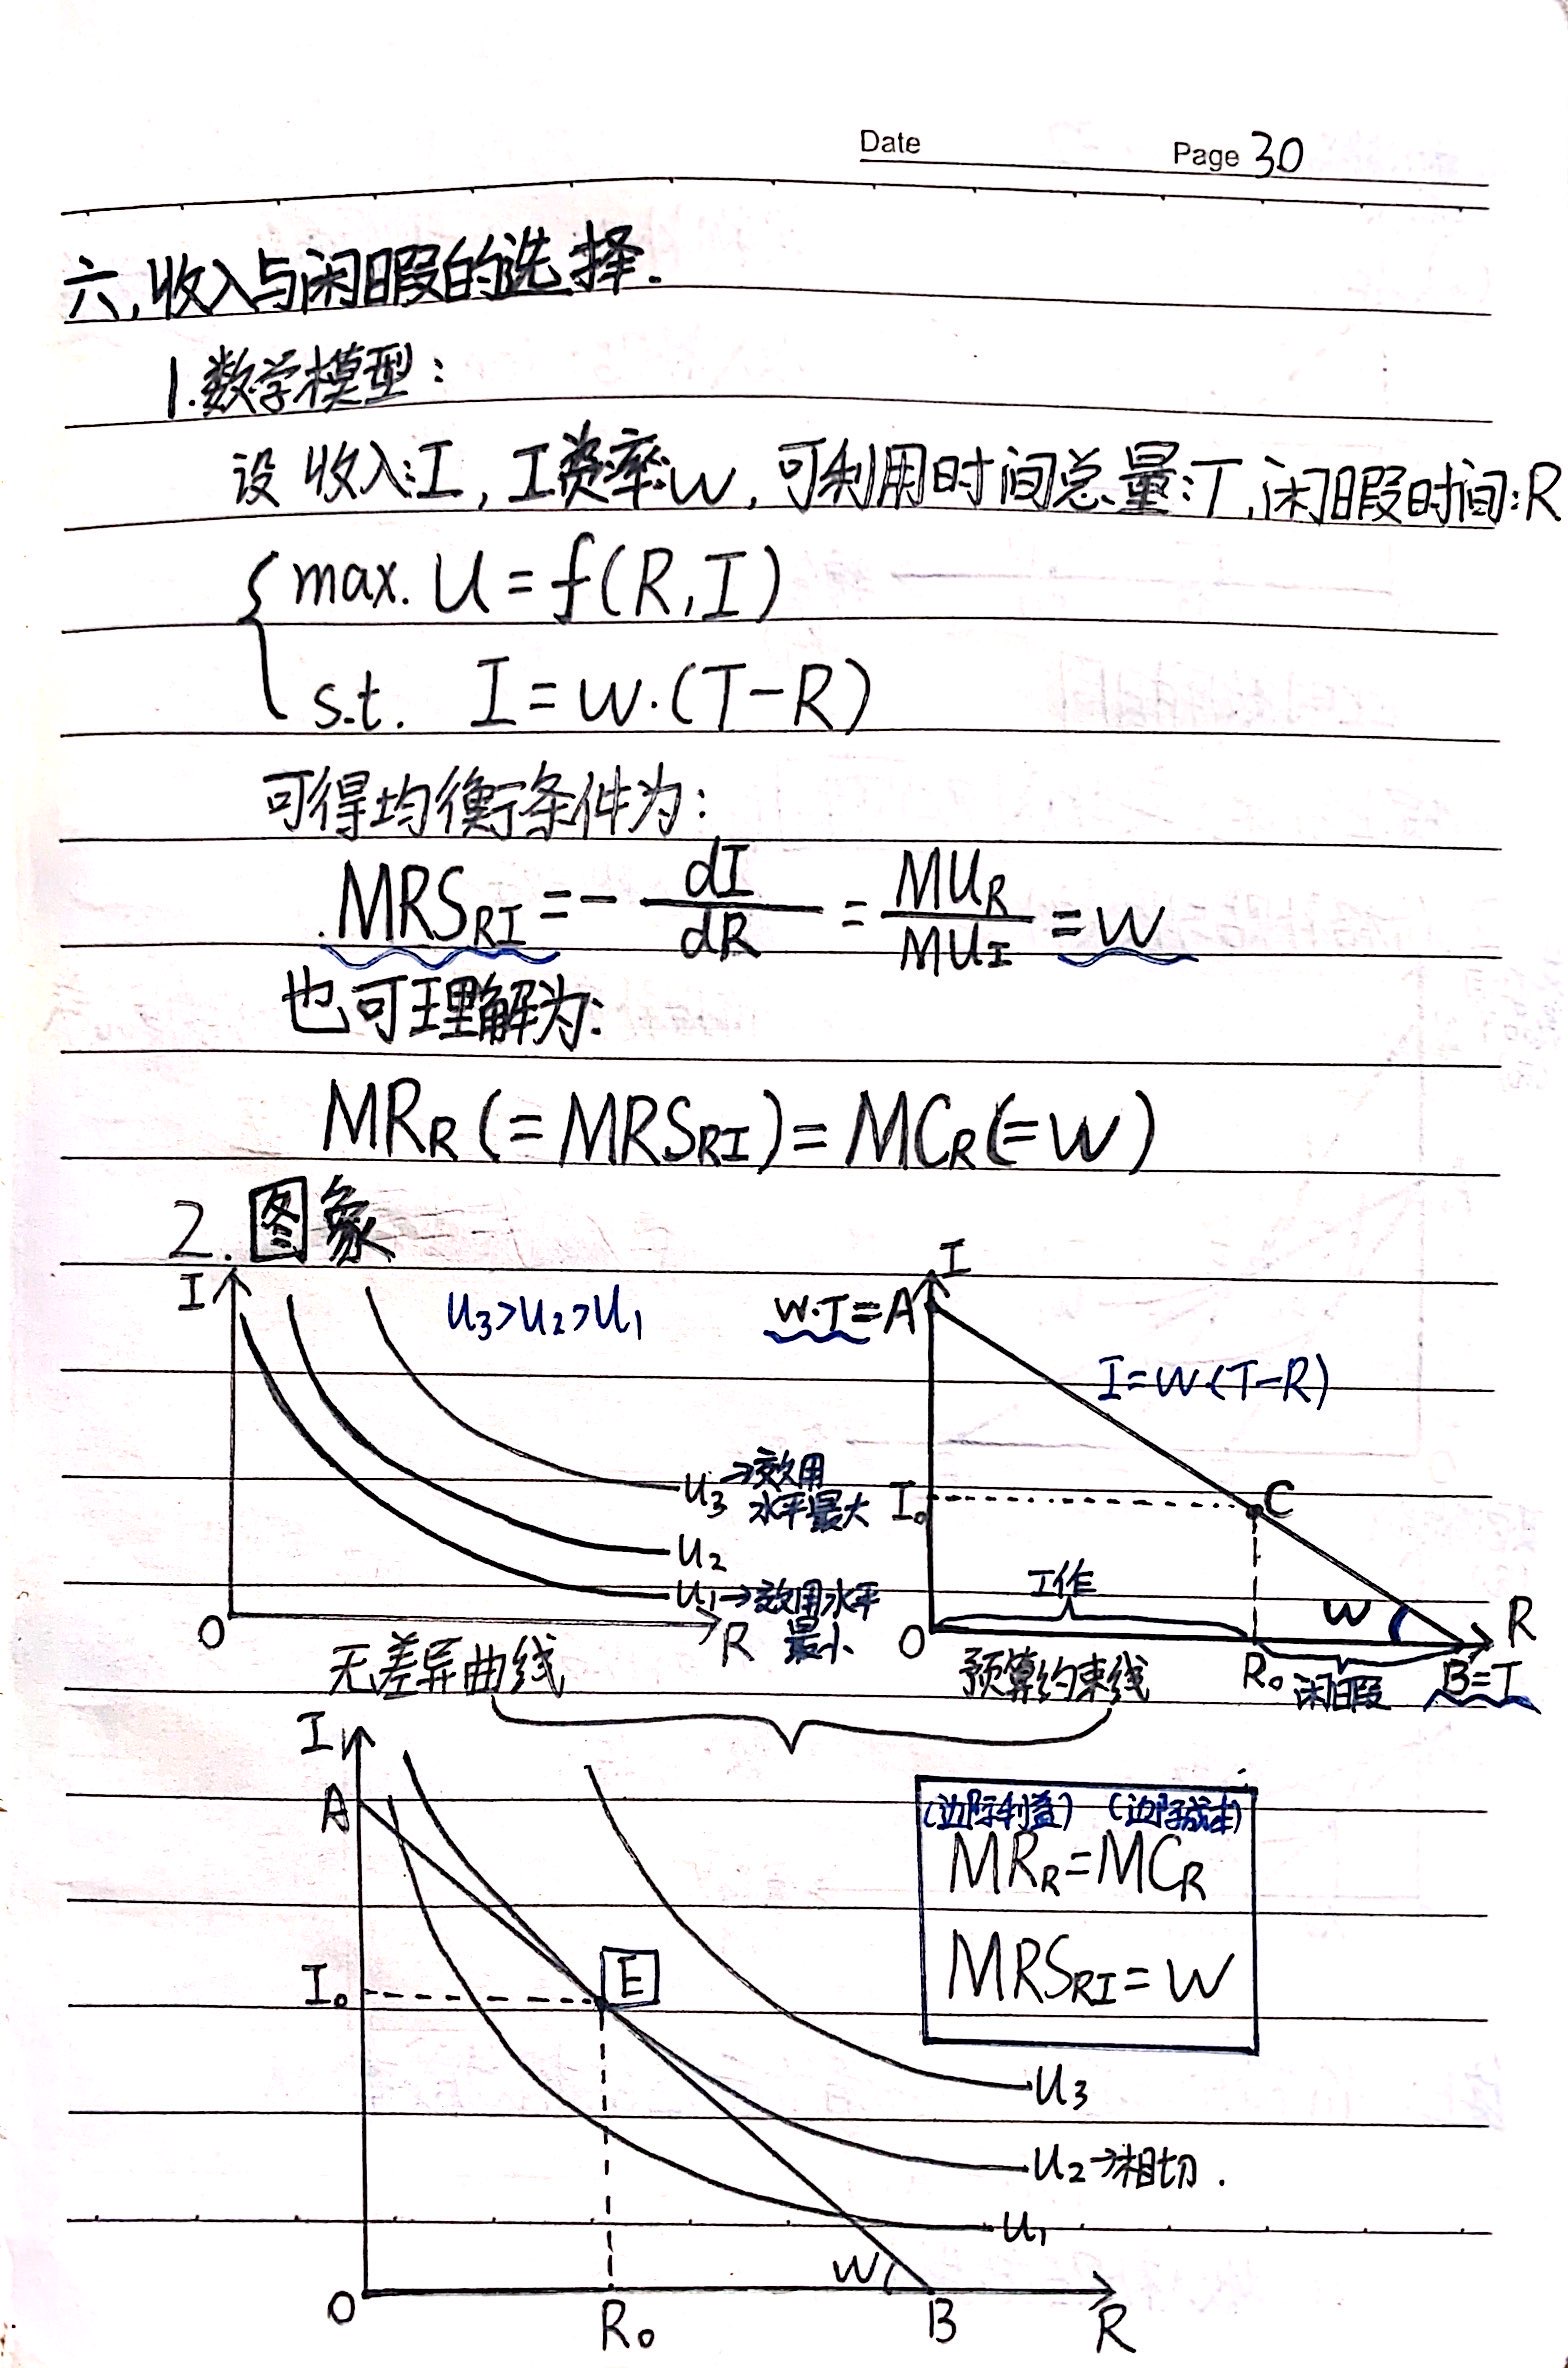 Date
Page 30
六,收入与闲暇的选择.
1.数学模型:
设 收入:I, 工资率:w, 可利用时间总量:T, 闲暇时间:R
max. U = f(R, I)
s.t. I = w·(T-R)
可得均衡条件为:
MRS_RI = - dI/dR = MU_R/MU_I = w
也可理解为:
MR_R (= MRS_RI) = MC_R (= w)
2. 图象
I
U3>U2>U1
U3→效用
水平最大
U2
U1→效用水平
最小
O
R
无差异曲线
I
w·T=A
I=w·(T-R)
I0
C
工作
w
R
O
R0
闲暇
B=T
预算约束线
I
A
I0
E
(边际利益) (边际成本)
MR_R=MC_R
MRS_RI=w
U3
U2→相切.
U1
w
O
R0
B
R